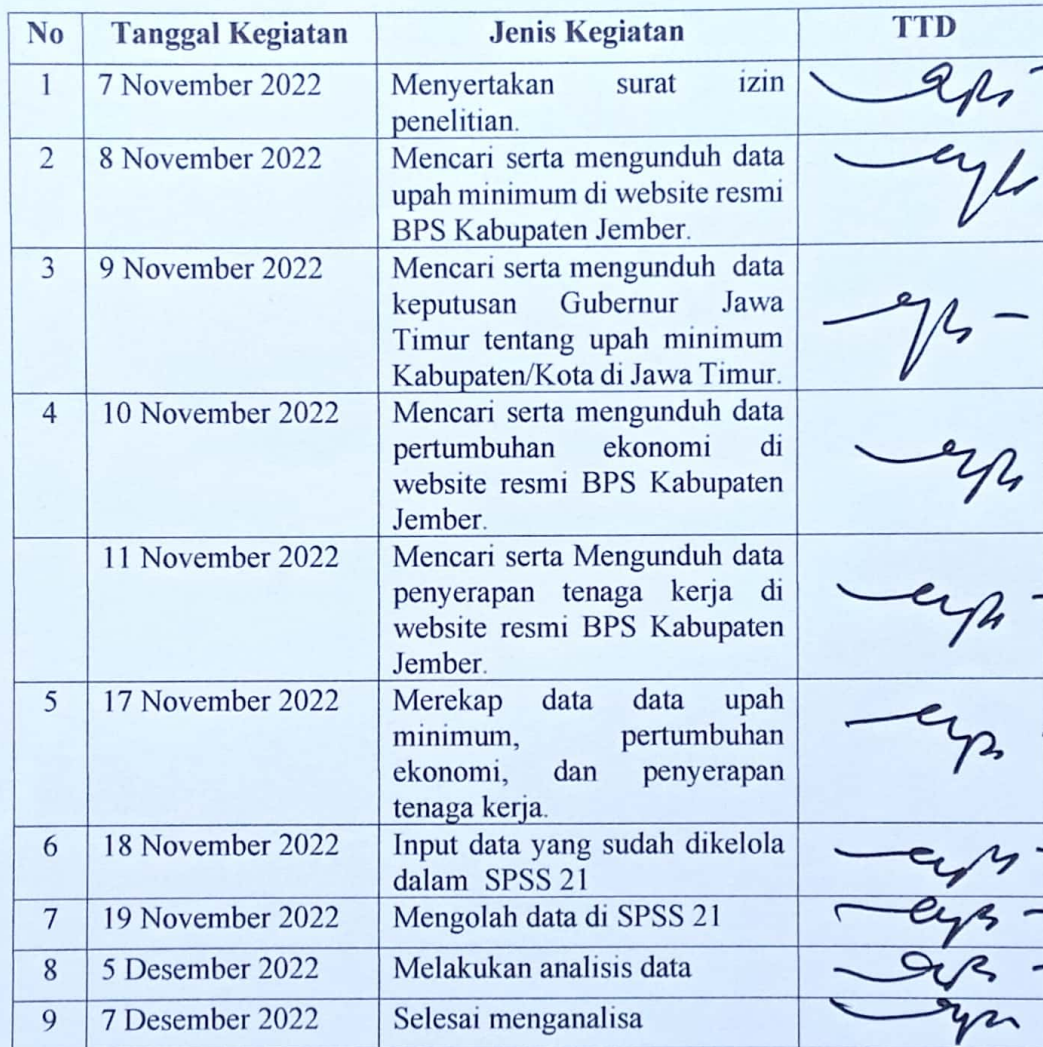 No Tanggal Kegiatan Jenis Kegiatan TTD
1 7 November 2022 Menyertakan surat izin
penelitian.
2 8 November 2022 Mencari serta mengunduh data
upah minimum di website resmi
BPS Kabupaten Jember.
3 9 November 2022 Mencari serta mengunduh data
keputusan Gubernur Jawa
Timur tentang upah minimum
Kabupaten/Kota di Jawa Timur.
4 10 November 2022 Mencari serta mengunduh data
pertumbuhan ekonomi di
website resmi BPS Kabupaten
Jember.
11 November 2022 Mencari serta Mengunduh data
penyerapan tenaga kerja di
website resmi BPS Kabupaten
Jember.
5 17 November 2022 Merekap data data upah
minimum, pertumbuhan
ekonomi, dan penyerapan
tenaga kerja.
6 18 November 2022 Input data yang sudah dikelola
dalam SPSS 21
7 19 November 2022 Mengolah data di SPSS 21
8 5 Desember 2022 Melakukan analisis data
9 7 Desember 2022 Selesai menganalisa